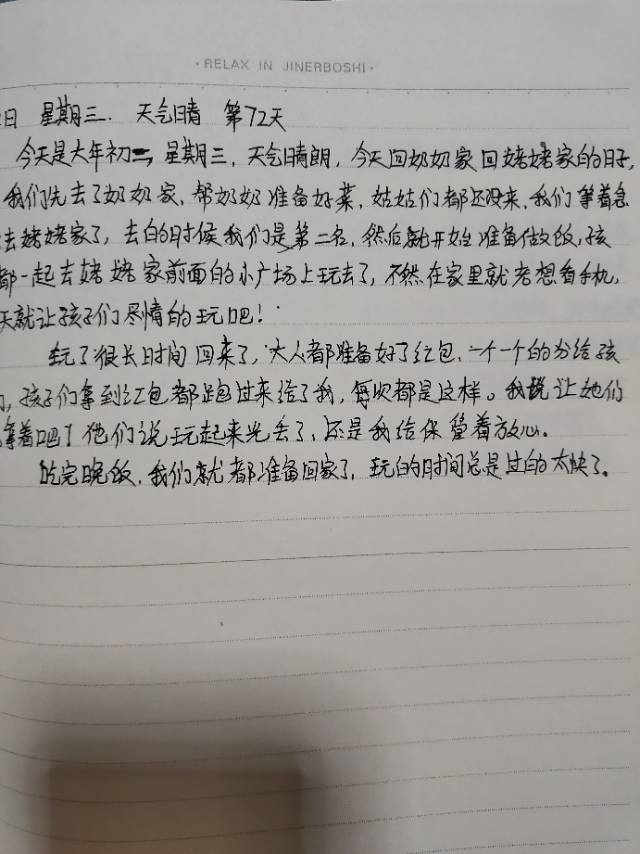 ·RELAX IN JINERBOSHI·
日 星期三. 天气晴 第72天
今天是大年初二, 星期三, 天气晴朗, 今天回奶奶家回姥姥家的日子,
我们先去了奶奶家, 帮奶奶准备好菜, 姑姑们都还没来, 我们等着急
去姥姥家了, 去的时候我们是第二名, 然后就开始准备做饭, 孩
都一起去姥姥家前面的小广场上玩去了, 不然在家里就老想看手机,
天就让孩子们尽情的玩吧!
玩了很长时间回来了, 大人都准备好了红包, 一个一个的分给孩
, 孩子们拿到红包都跑过来给了我, 每次都是这样。我说让她们
拿着吧! 他们说玩起来光丢了, 还是我给保管着放心.
吃完晚饭, 我们就都准备回家了, 玩的时间总是过的太快了。